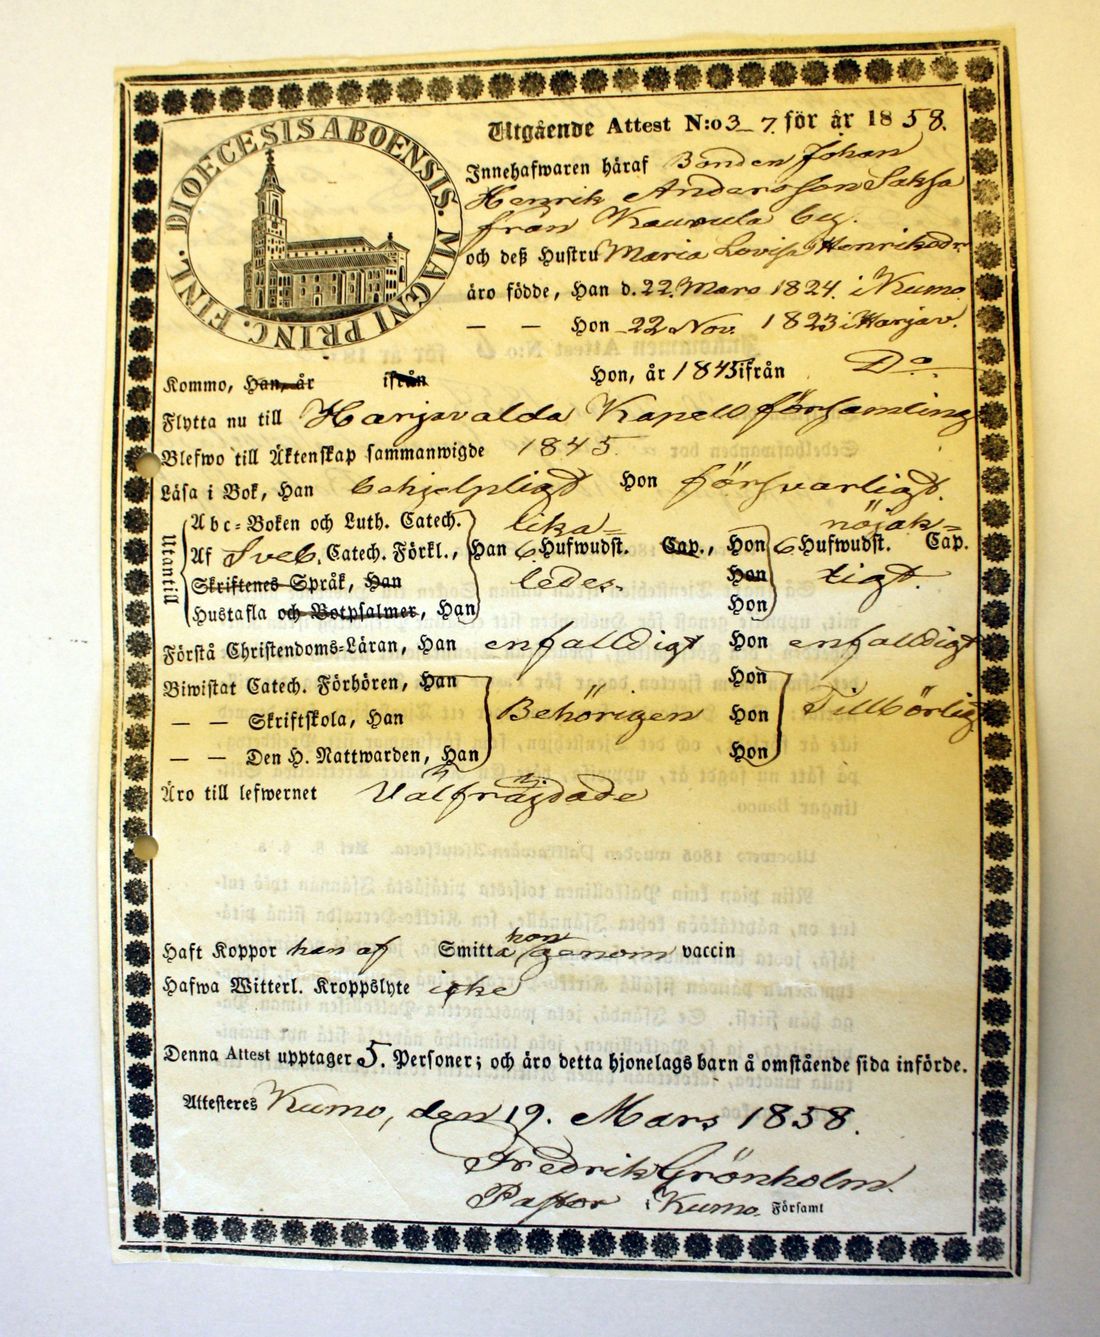 DIOECESIS ABOENSIS. MAGNI PRINC. FINL.
Utgående Attest N:o 3-7. för år 1858.
Innehafwaren häraf Bonden Johan
Henrik Andersson Saksa
från Kauvula by.
och deß Hustru Maria Lovisa Henriksdr
äro födde, Han d. 22. Mars 1824. i Kumo.
— — Hon 22 Nov. 1823 i Harjav.
Kommo, Han, år ifrån Hon, år 1845 ifrån Do
Flytta nu till Harjavalda Kapellförsamling
Blefwo till Äktenskap sammanwigde 1845.
Läsa i Bok, Han behjelpligt Hon försvarligt.
Utantill
Abc-Boken och Luth. Catech. lika= nöjak=
Af Sveb. Catech. Förkl., Han 6 Hufwudst. Cap., Hon 6 Hufwudst. Cap.
Skriftenes Språk, Han ledes. Hon tigt.
Hustafla och Botpsalmer, Han Hon
Förstå Christendoms-Läran, Han enfalldigt Hon enfalldigt
Biwistat Catech. Förhören, Han Hon
— — Skriftskola, Han Behörigen Hon Tillbörligt
— — Den H. Nattwarden, Han Hon
Äro till lefwernet Välfrägdade
Haft Koppor han af Smitta hon genom vaccin
Hafwa Witterl. Kroppslyte icke
Denna Attest upptager 5. Personer; och äro detta hjonelags barn å omstående sida införde.
Attesteres Kumo, den 19. Mars 1858.
Fredrik Grönholm.
Pastor i Kumo. Församl